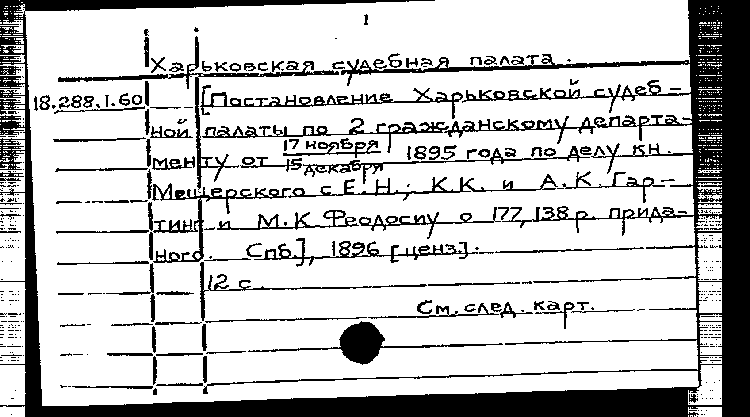 1
Харьковская судебная палата.
18.288.1.60 [Постановление Харьковской судеб-
ной палаты по 2 гражданскому департа-
менту от 17 ноября / 15 декабря 1895 года по делу кн.
Мещерского с Е.Н.; К.К. и А.К Гар-
тинг и М.К Феодосиу о 177,138 р. прида-
ного. Спб.], 1896 [ценз].
12 с.
См. след. карт.